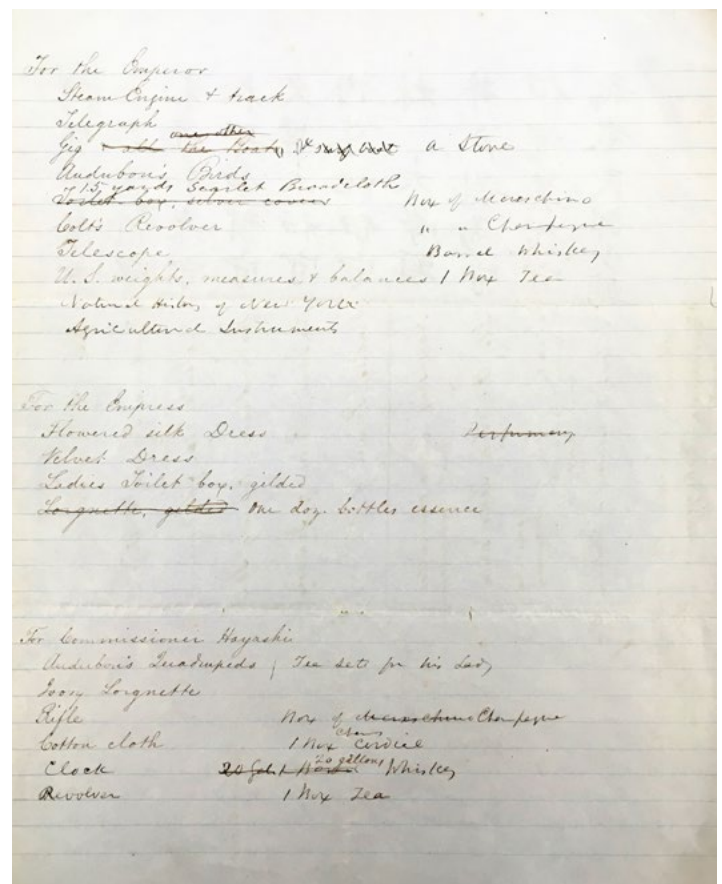 For the Emperor
Steam Engine & track
Telegraph
one other
Gig & all the Boats a Stove
Audubon's Birds
15 yards Scarlet Broadcloth
Toilet box, silver covers Box of Maraschino
Colt's Revolver " " Champagne
Telescope Barrel Whiskey
U.S. weights, measures & balances 1 Box Tea
Natural History of New York
Agricultural Instruments
For the Empress
Flowered silk Dress Perfumery
Velvet Dress
Ladies Toilet box, gilded
Lorgnette, gilded One doz. bottles essence
For Commissioner Hayashi
Audubon's Quadrupeds Tea sett for his Lady
Ivory Lorgnette
Rifle Box of Maraschino Champagne
Cotton cloth 1 Box Cordial
20 gallons
Clock 20 Gal. 1 Whiskey
Revolver 1 Box Tea